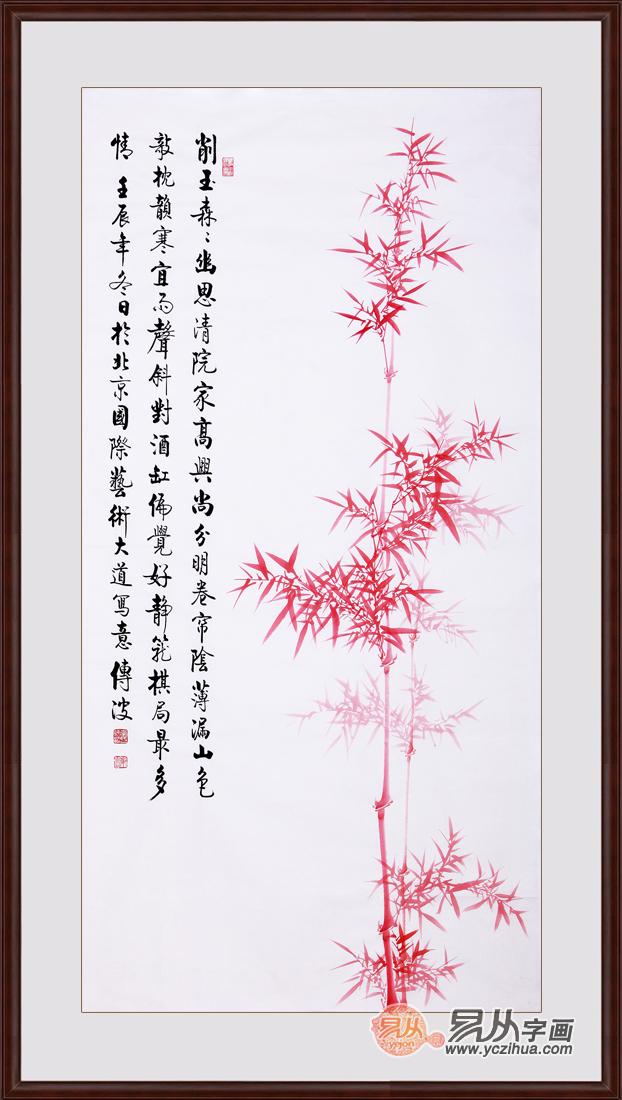 削玉森々幽思清院家高興尚分明卷帘陰薄漏山色
敲枕韻寒宜雨聲斜對酒缸偏覺好静籠棋局最多
情 壬辰年冬日於北京國際藝術大道寫意傳波
易从
yczon
易从字画
www.yczihua.com